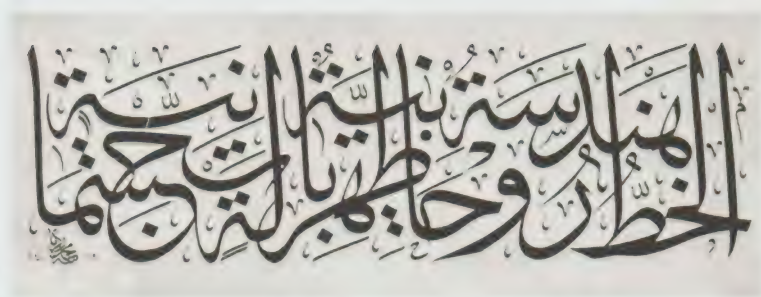 الخطُّ هندسةٌ روحانيةٌ ظهرت بآلةٍ جسمانية